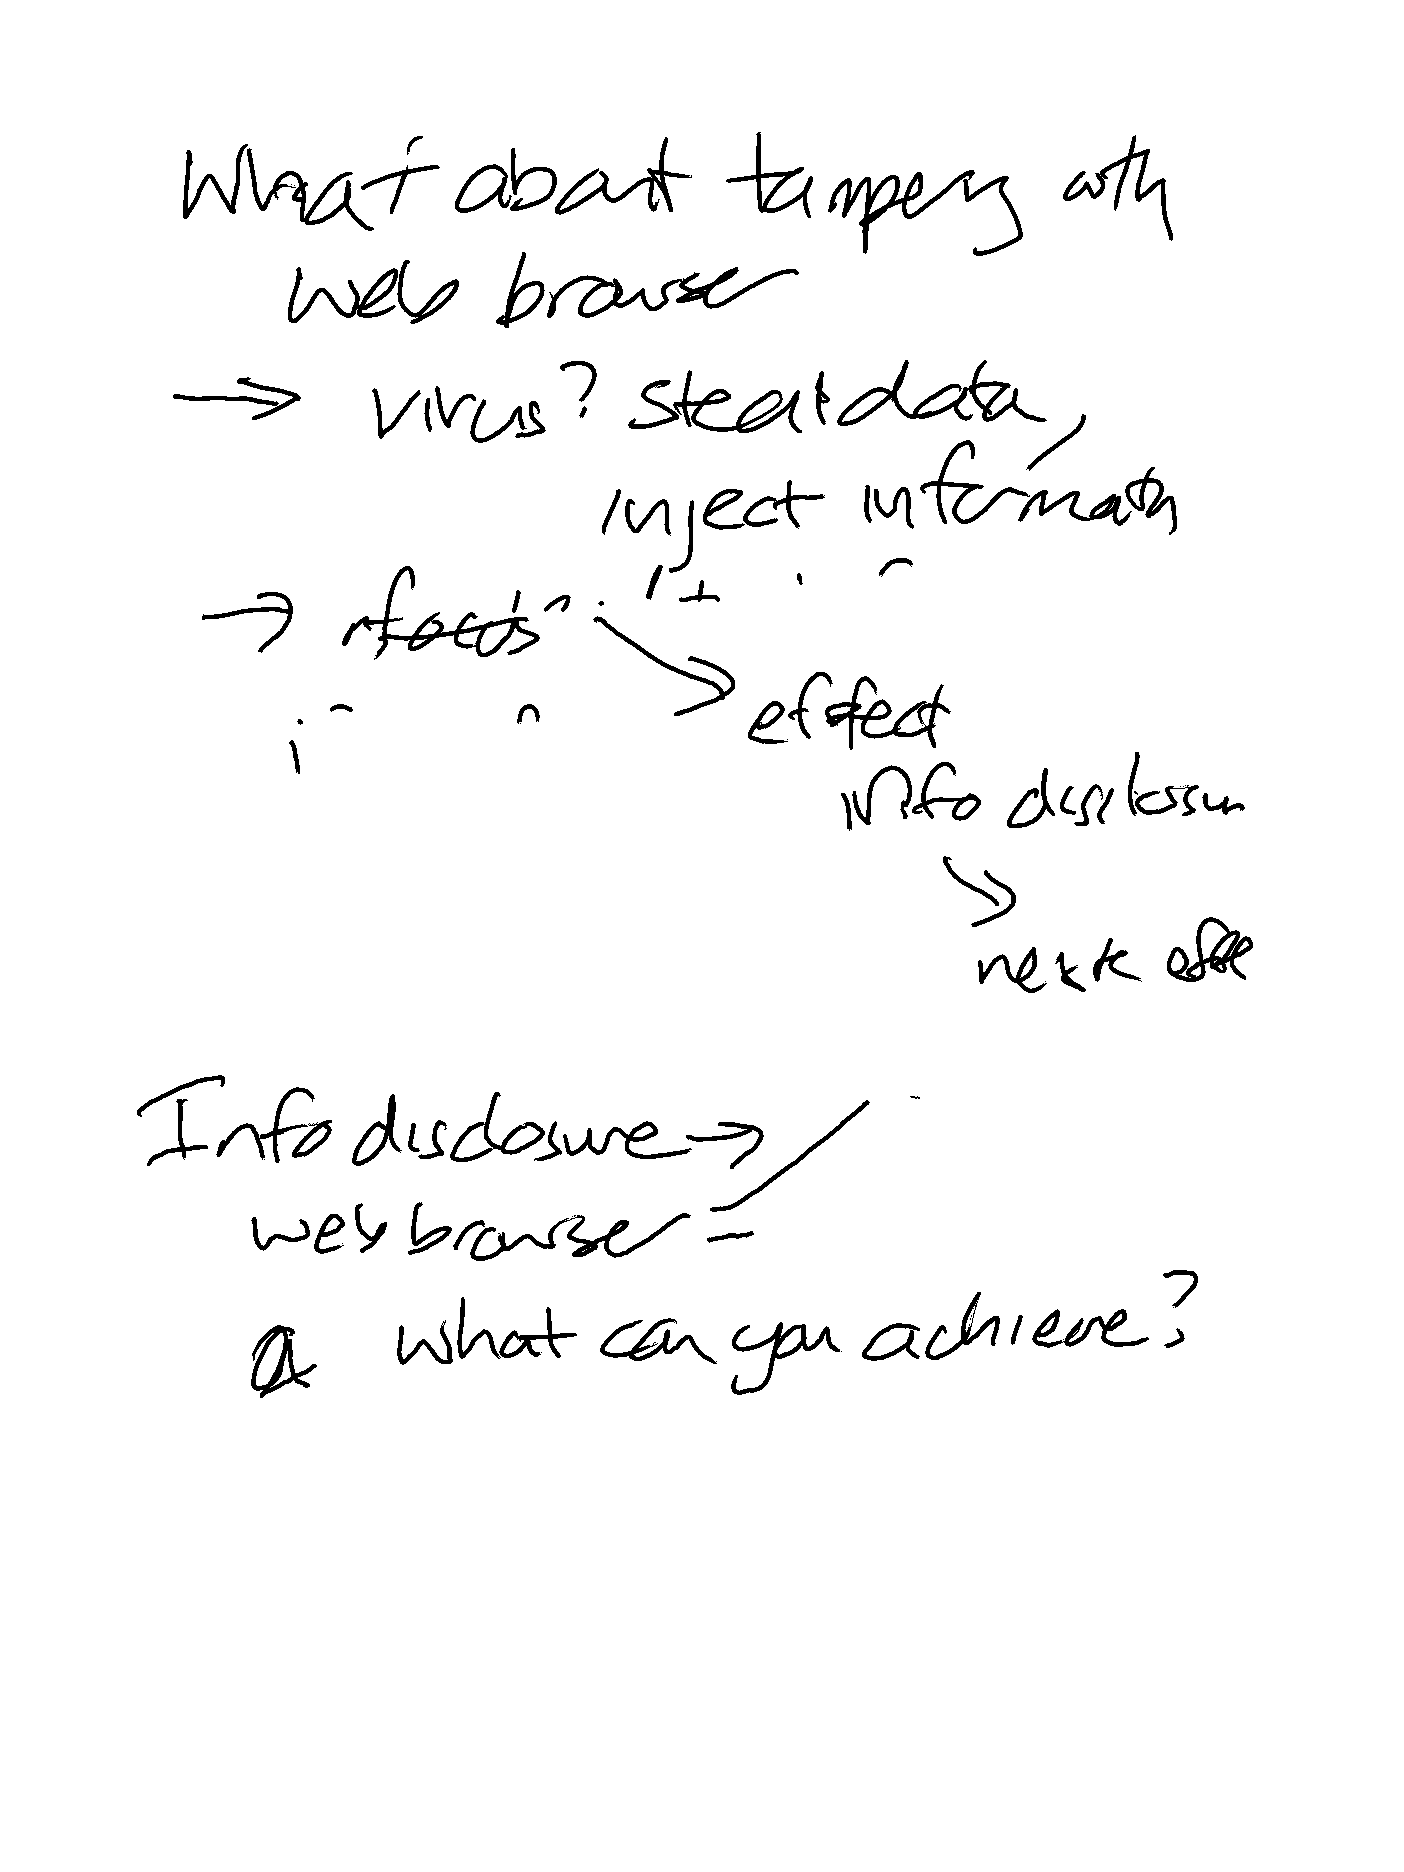 What about tampering with
web browser
→ virus? steal data,
inject information
→
→ effect
info disclosure
→
next effe
Info disclosure →
web browser =
what can you achieve?